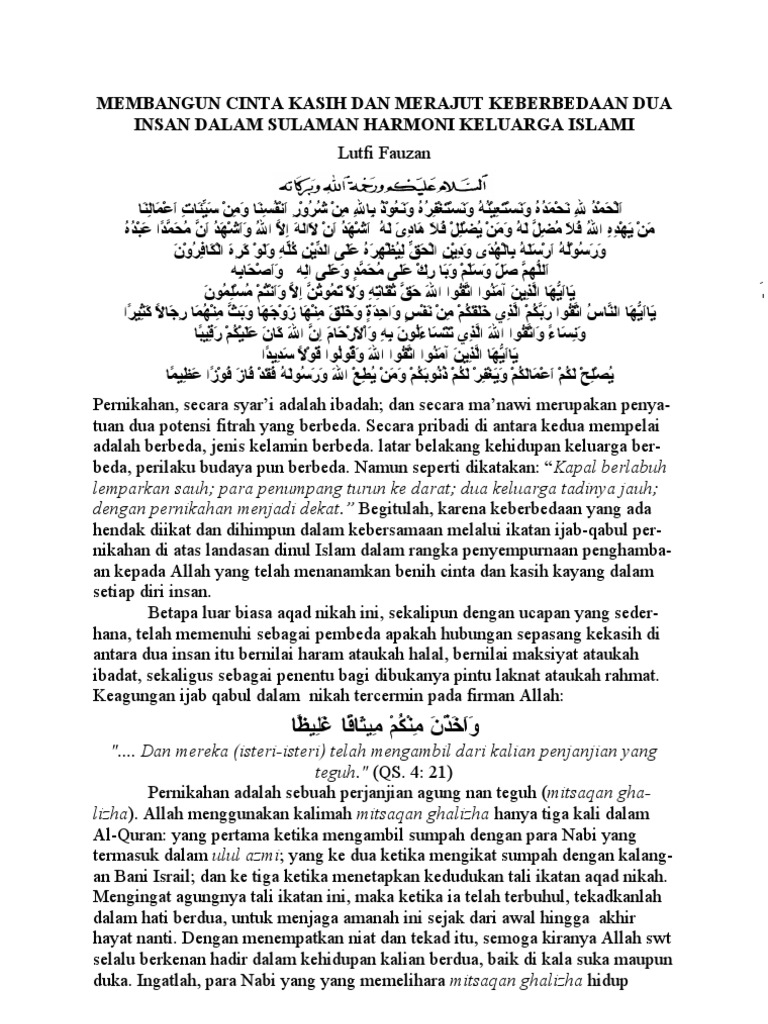 MEMBANGUN CINTA KASIH DAN MERAJUT KEBERBEDAAN DUA
INSAN DALAM SULAMAN HARMONI KELUARGA ISLAMI
Lutfi Fauzan
السلام عليكم ورحمة الله وبركاته
اَلْحَمْدُ لِلّهِ نَحْمَدُهُ وَنَسْتَعِيْنُهُ وَنَسْتَغْفِرُهُ وَنَعُوْذُ بِاللهِ مِنْ شُرُوْرِ اَنْفُسِنَا وَمِنْ سَيِّئَاتِ اَعْمَالِنَا
مَنْ يَهْدِهِ اللهُ فَلَا مُضِلَّ لَهُ وَمَنْ يُضْلِلْ فَلَا هَادِىَ لَهُ اَشْهَدُ اَنْ لَاَالهَ اِلاَّ اللهَ وَاَشْهَدُ اَنَّ مُحَمَّدًا عَبْدُهُ
وَرَسُوْلُهُ اَرْسَلَهُ بِالْهُدَى وَدِيْنِ الْحَقِّ لِيُظْهِرَهُ عَلَى الدِّيْنِ كُلِّهِ وَلَوْ كَرِهَ الْكَافِرُوْنَ
اَللّهُمَّ صَلِّ وَسَلِّمْ وَبَا رِكْ عَلَى مُحَمَّدٍ وَعَلَى اِلِهِ وَاَصْحَابِهِ
يَااَيُّهَا الَّذِينَ آمَنُوا اتَّقُوا اللهَ حَقَّ تُقَاتِهِ وَلاَ تَمُوْتُنَّ إِلاَّ وَاَنْتُمْ مُسْلِمُونَ
يَااَيُّهَا النَّاسُ اتَّقُوا رَبَّكُمُ الَّذِي خَلَقَكُمْ مِنْ نَفْسٍ وَاحِدَةٍ وَخَلَقَ مِنْهَا زَوْجَهَا وَبَثَّ مِنْهُمَا رِجَالاً كَثِيْرًا
وَنِسَاءً وَاتَّقُوا اللهَ الَّذِي تَتَسَاءَلُونَ بِهِ وَاْلاَرْحَامَ إِنَّ اللهَ كَانَ عَلَيْكُمْ رَقِيْبًا
يَااَيُّهَا الَّذِينَ آمَنُوا اتَّقُوا اللهَ وَقُولُوا قَوْلاً سَدِيدًا
يُصْلِحْ لَكُمْ اَعْمَالَكُمْ وَيَغْفِرْ لَكُمْ ذُنُوبَكُمْ وَمَنْ يُطِعْ اللهَ وَرَسُولَهُ فَقَدْ فَازَ فَوْزًا عَظِيمًا
Pernikahan, secara syar’i adalah ibadah; dan secara ma’nawi merupakan penya-
tuan dua potensi fitrah yang berbeda. Secara pribadi di antara kedua mempelai
adalah berbeda, jenis kelamin berbeda. latar belakang kehidupan keluarga ber-
beda, perilaku budaya pun berbeda. Namun seperti dikatakan: “Kapal berlabuh
lemparkan sauh; para penumpang turun ke darat; dua keluarga tadinya jauh;
dengan pernikahan menjadi dekat.” Begitulah, karena keberbedaan yang ada
hendak diikat dan dihimpun dalam kebersamaan melalui ikatan ijab-qabul per-
nikahan di atas landasan dinul Islam dalam rangka penyempurnaan penghamba-
an kepada Allah yang telah menanamkan benih cinta dan kasih kayang dalam
setiap diri insan.
Betapa luar biasa aqad nikah ini, sekalipun dengan ucapan yang seder-
hana, telah memenuhi sebagai pembeda apakah hubungan sepasang kekasih di
antara dua insan itu bernilai haram ataukah halal, bernilai maksiyat ataukah
ibadat, sekaligus sebagai penentu bagi dibukanya pintu laknat ataukah rahmat.
Keagungan ijab qabul dalam nikah tercermin pada firman Allah:
وَاَخَذْنَ مِنْكُمْ مِيثَاقًا غَلِيظًا
".... Dan mereka (isteri-isteri) telah mengambil dari kalian penjanjian yang
teguh." (QS. 4: 21)
Pernikahan adalah sebuah perjanjian agung nan teguh (mitsaqan gha-
lizha). Allah menggunakan kalimah mitsaqan ghalizha hanya tiga kali dalam
Al-Quran: yang pertama ketika mengambil sumpah dengan para Nabi yang
termasuk dalam ulul azmi; yang ke dua ketika mengikat sumpah dengan kalang-
an Bani Israil; dan ke tiga ketika menetapkan kedudukan tali ikatan aqad nikah.
Mengingat agungnya tali ikatan ini, maka ketika ia telah terbuhul, tekadkanlah
dalam hati berdua, untuk menjaga amanah ini sejak dari awal hingga akhir
hayat nanti. Dengan menempatkan niat dan tekad itu, semoga kiranya Allah swt
selalu berkenan hadir dalam kehidupan kalian berdua, baik di kala suka maupun
duka. Ingatlah, para Nabi yang yang memelihara mitsaqan ghalizha hidup